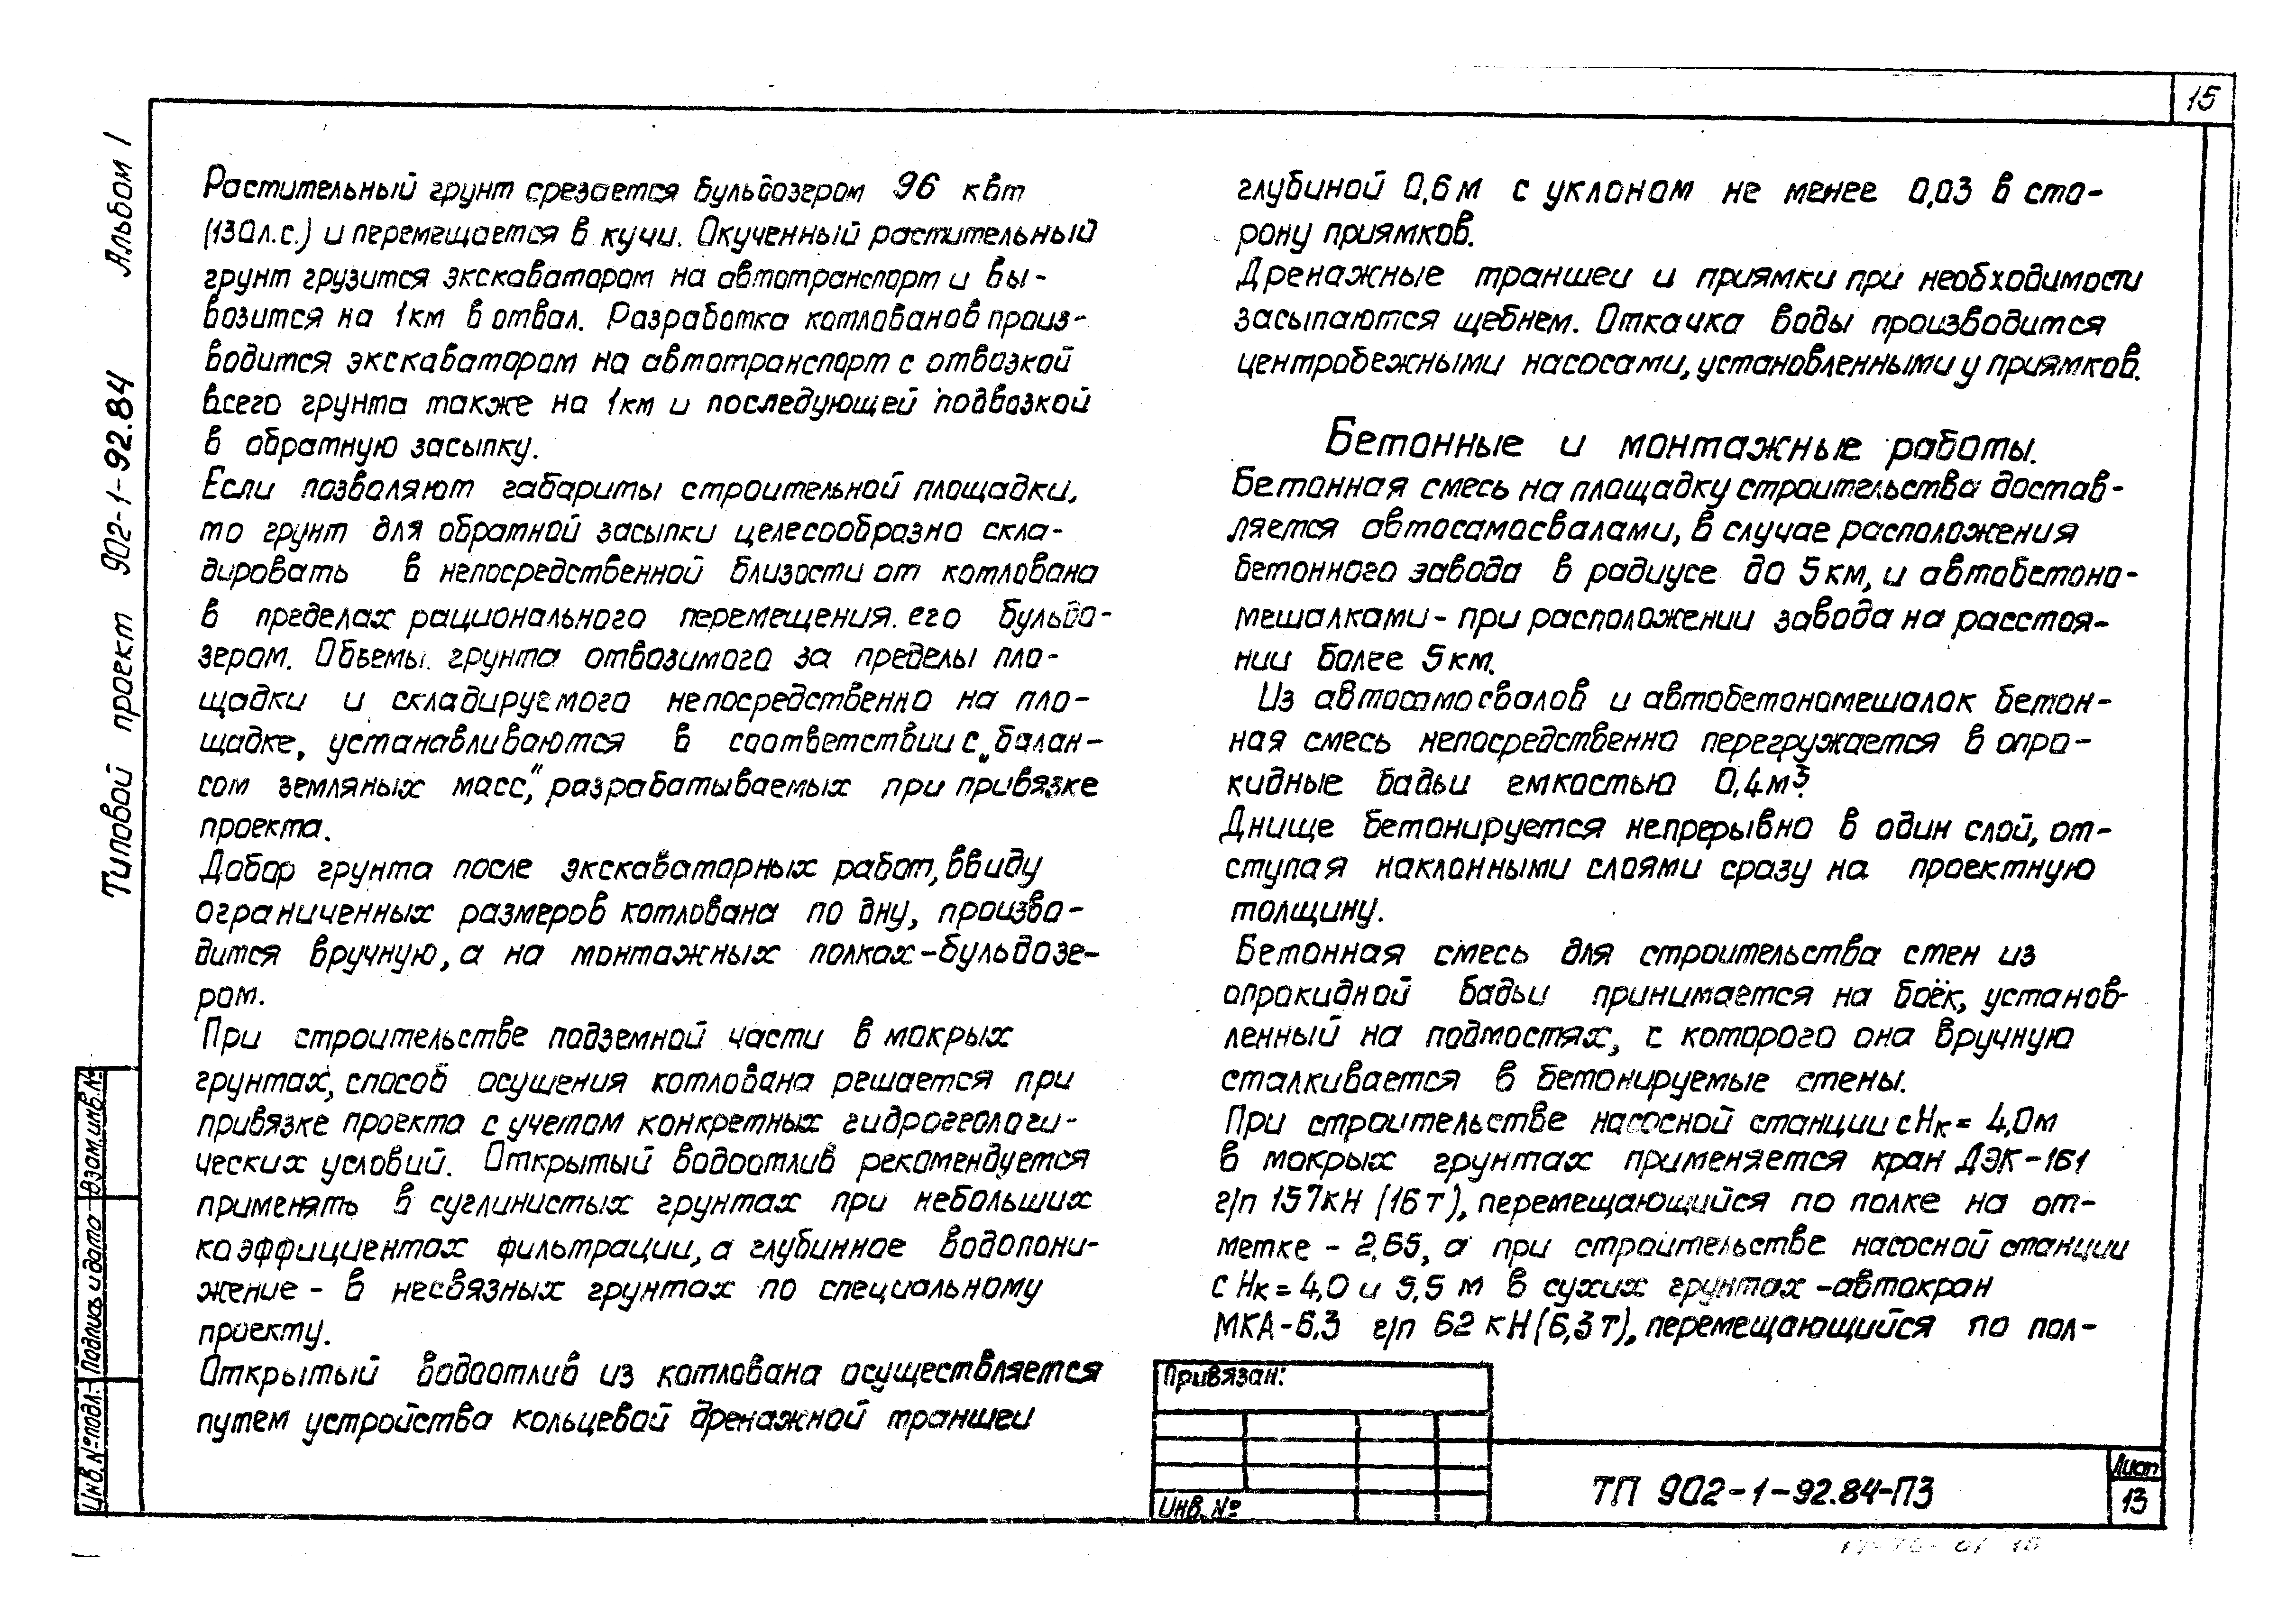 15
Альбом 1
Типовой проект 902-1-92.84
Растительный грунт срезается бульдозером 96 квт
(130л.с.) и перемещается в кучи. Окученный растительный
грунт грузится экскаватором на автотранспорт и вы-
возится на 1км в отвал. Разработка котлованов произ-
водится экскаватором на автотранспорт с отвозкой
всего грунта также на 1км и последующей подвозкой
в обратную засыпку.
Если позволяют габариты строительной площадки,
то грунт для обратной засыпки целесообразно скла-
дировать в непосредственной близости от котлована
в пределах рационального перемещения его бульдо-
зером. Объемы грунта отвозимого за пределы пло-
щадки и складируемого непосредственно на пло-
щадке, устанавливаются в соответствии с „балан-
сом земляных масс," разрабатываемых при привязке
проекта.
Добор грунта после экскаваторных работ, ввиду
ограниченных размеров котлована по дну, произво-
дится вручную, а на монтажных полках-бульдозе-
ром.
При строительстве подземной части в мокрых
грунтах, способ осушения котлована решается при
привязке проекта с учетом конкретных гидрогеологи-
ческих условий. Открытый водоотлив рекомендуется
применять в суглинистых грунтах при небольших
коэффициентах фильтрации, а глубинное водопони-
жение - в несвязных грунтах по специальному
проекту.
Открытый водоотлив из котлована осуществляется
путем устройства кольцевой дренажной траншеи
глубиной 0,6м с уклоном не менее 0,03 в сто-
рону приямков.
Дренажные траншеи и приямки при необходимости
засыпаются щебнем. Откачка воды производится
центробежными насосами, установленными у приямков.
Бетонные и монтажные работы.
Бетонная смесь на площадку строительства достав-
ляется автосамосвалами, в случае расположения
бетонного завода в радиусе до 5км, и автобетоно-
мешалками - при расположении завода на расстоя-
нии более 5км.
Из автосамосвалов и автобетономешалок бетон-
ная смесь непосредственно перегружается в опро-
кидные бадьи емкостью 0,4м³.
Днище бетонируется непрерывно в один слой, от-
ступая наклонными слоями сразу на проектную
толщину.
Бетонная смесь для строительства стен из
опрокидной бадьи принимается на боёк, установ-
ленный на подмостях, с которого она вручную
сталкивается в бетонируемые стены.
При строительстве насосной станции с Нк= 4,0м
в мокрых грунтах применяется кран ДЭК-161
г/п 157кН (16 т), перемещающийся по полке на от-
метке - 2.65, а при строительстве насосной станции
с Нк= 4,0 и 5,5 м в сухих грунтах -автокран
МКА-6,3 г/п 62 кН (6,3 т), перемещающийся по пол-
Привязан:
Инв. №
ТП 902-1-92.84-ПЗ
Лист
13
Взам.инв.№
Подпись и дата
Инв.№подл.